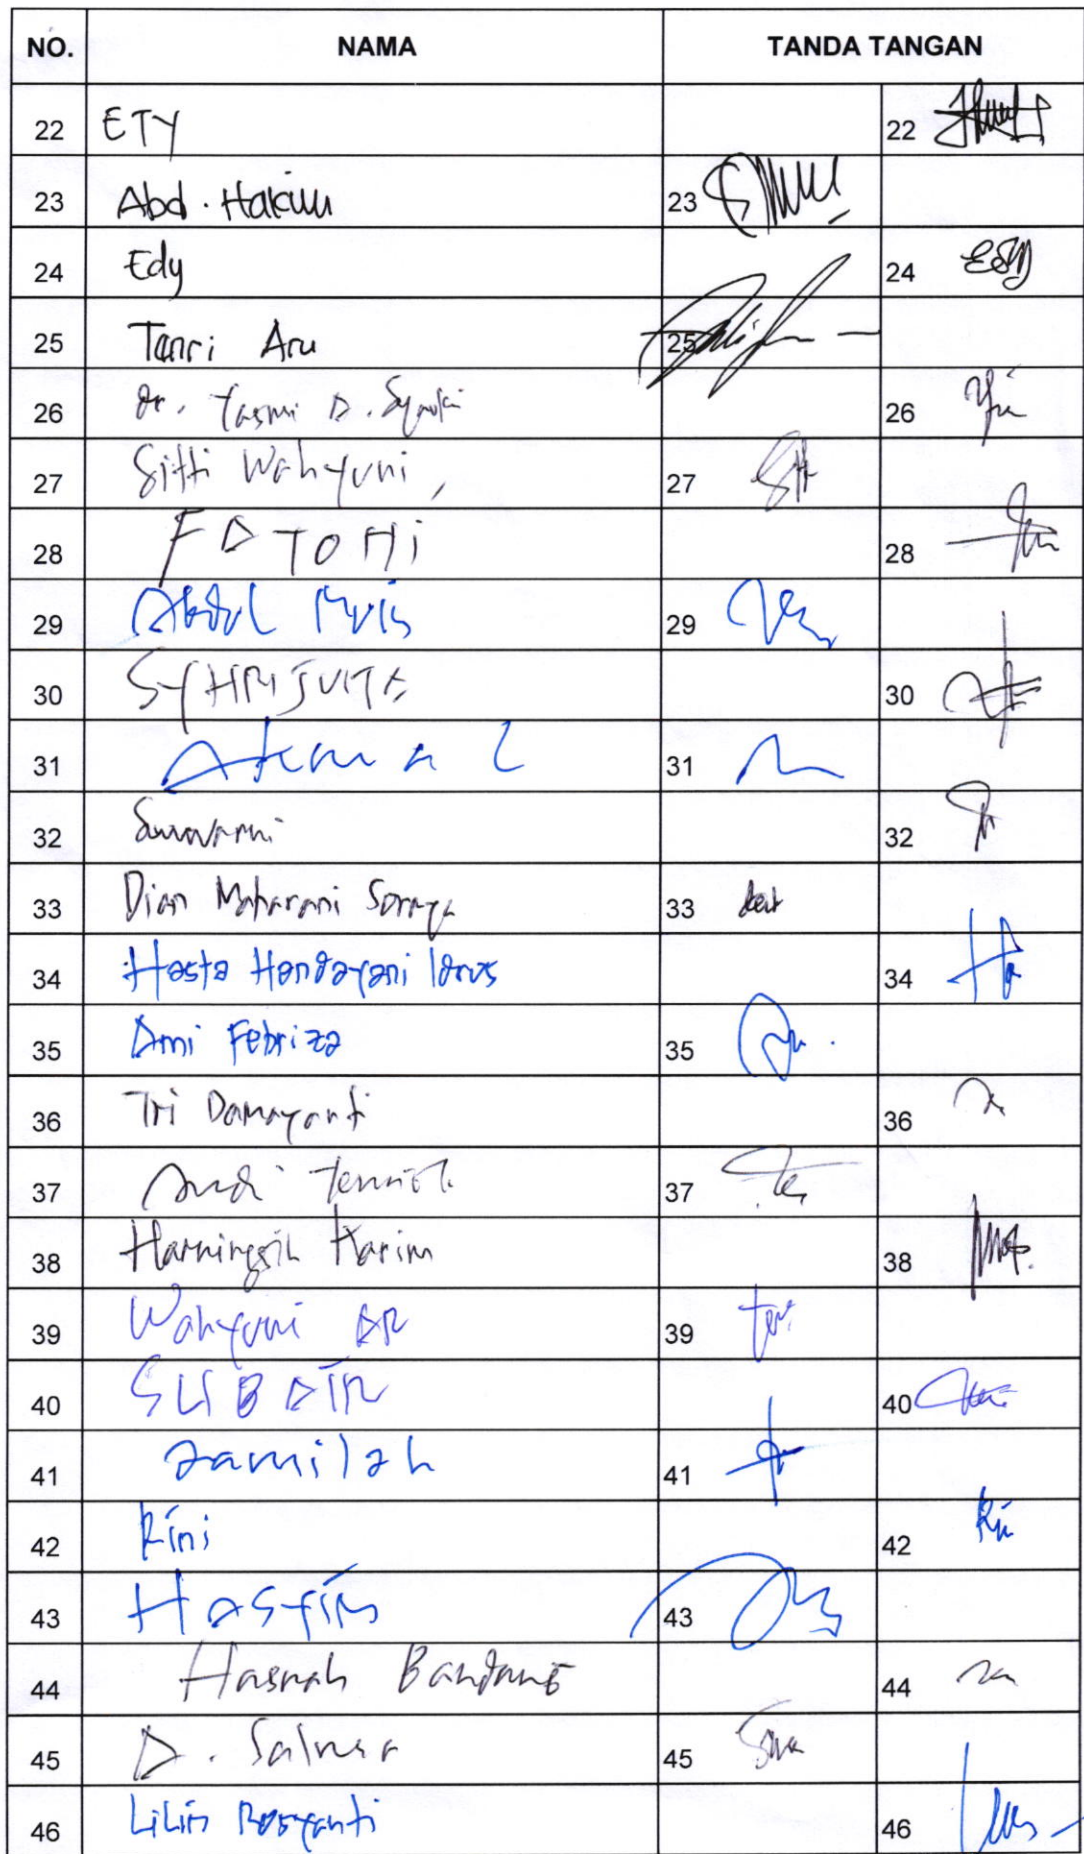 NO. NAMA TANDA TANGAN
22 ETY 22
23 Abd. Hakim 23
24 Edy 24 Edy
25 Tanri Aru 25
26 dr. Yasmi D. 26
27 Sitti Wahyuni, 27
28 28
29 Abdul Muis 29
30 30
31 Akmal 31
32 Suwarni 32
33 Dian Maharani Soraya 33
34 Hasta Handayani Idrus 34
35 Ami Febriza 35
36 Tri Damayanti 36
37 Andi 37
38 Harningsih Karim 38
39 Wahyuni AR 39
40 SUBAIR 40
41 Jamilah 41
42 Rini 42
43 HASYIM 43
44 Hasnah Bandang 44
45 D. Salma 45
46 Lilin Rosyanti 46